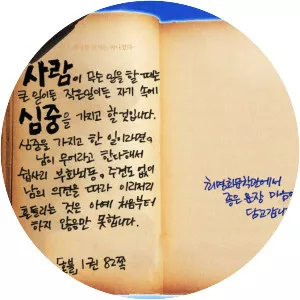 사람이 무슨 일을 할 때는
큰 일이든 작은일이든 자기 속에
심중을 가지고 할것입니다.
심중을 가지고 한 일이라면,
남이 무어라고 한다해서
쉽사리 부화뇌동, 주견도 없이
남의 의견을 따라 이리저리
흔들리는 것은 아예 처음부터
하지 않음만 못합니다.
혼불 1권 82쪽
최명희문학관에서
좋은 문장 마음에
담고갑니다